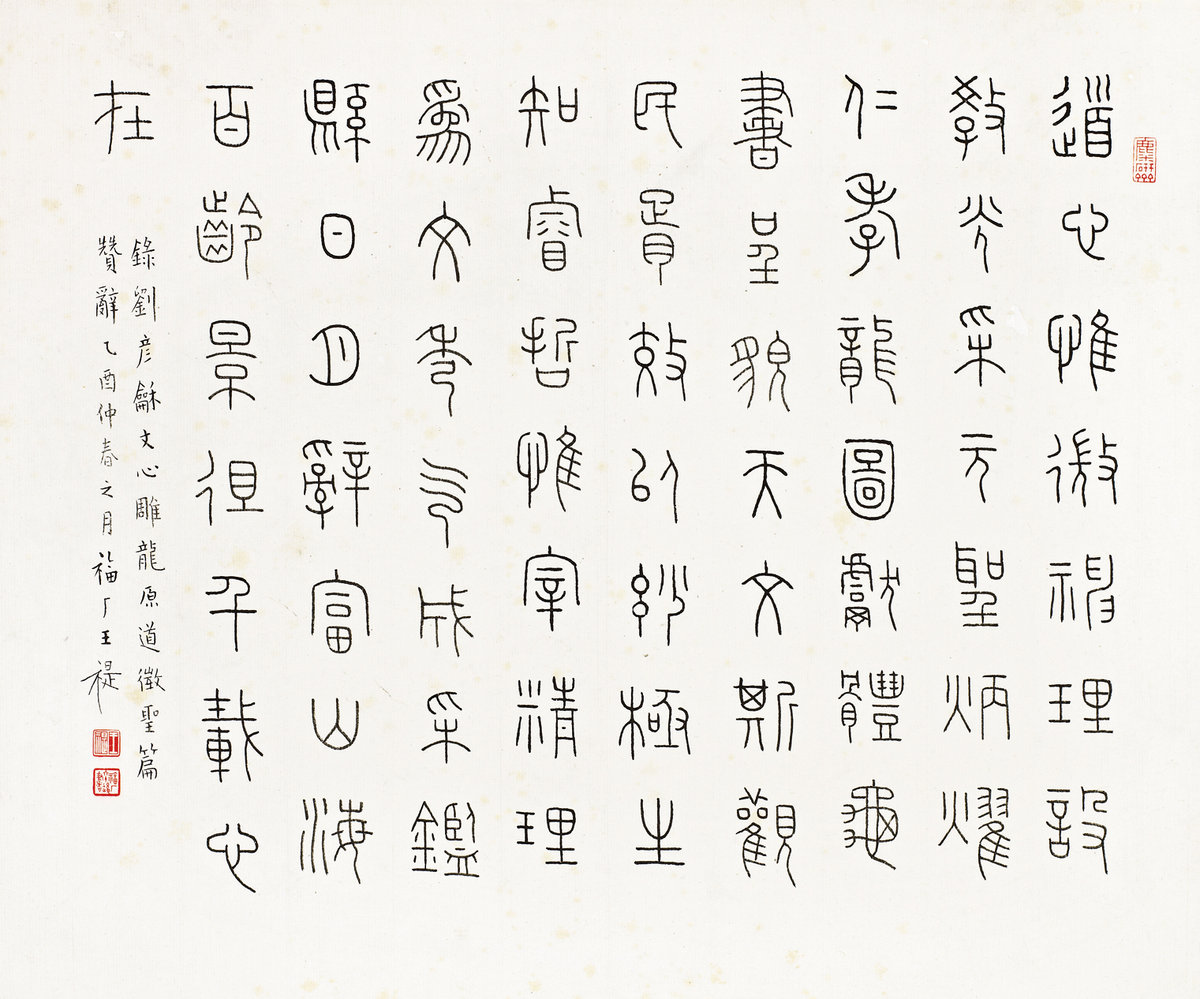 道心惟微神理設
教光采元聖炳燿
仁孝龍圖獻體龜
書呈貌天文斯觀
民胥效以妙極生
知睿哲惟宰精理
為文秀气成采鑑
縣日月辭富山海
百齡景徂千載心
在
錄劉彥龢文心雕龍原道徵聖篇
贊辭乙酉仲春之月福厂王禔